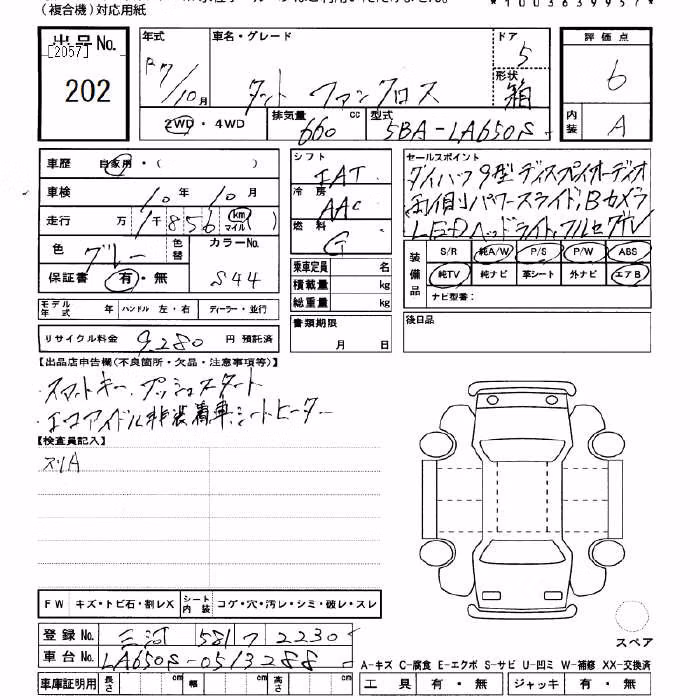 (複合機)対応用紙
*1003639957*
出品No. 年式 車名・グレード ドア 評価点
[2057]
202 R7/10月 タント ファンクロス 5 形状 箱 6
2WD・4WD 排気量 660 cc 型式 5BA-LA650S 内装 A
車歴 自家用・( )
車検 10年10月
走行 万1千856 km マイル
色 ブルー 色替 カラーNo.
保証書 有・無 S44
シフト IAT
冷房 AAC
燃料 G
乗車定員 名
積載量 kg
総重量 kg
書類期限
月 日
セールスポイント
ダイハツ9型ディスプレイオーディオ
両側パワースライド,Bカメラ
LEDヘッドライト,フルセグTV
装備品 S/R 純A/W P/S P/W ABS
純TV 純ナビ 革シート 外ナビ エアB
ナビ型番:
後日品
モデル年式 年 ハンドル 左・右 ディーラー・並行
リサイクル料金 9,280 円 預託済
【出品店申告欄(不良箇所・欠品・注意事項等)】
・スマートキー,プッシュスタート
・エコアイドル非装着車,シートヒーター
【検査員記入】
スリA
FW キズ・トビ石・割レX シート内装 コゲ・穴・汚レ・シミ・破レ・スレ
登録No. 三河 581 ワ 2230
車台No. LA650S-0513288
車庫証明用 長さ cm 幅 cm 高さ cm
スペア
A-キズ C-腐食 E-エクボ S-サビ U-凹ミ W-補修 XX-交換済
工具 有・無 ジャッキ 有・無